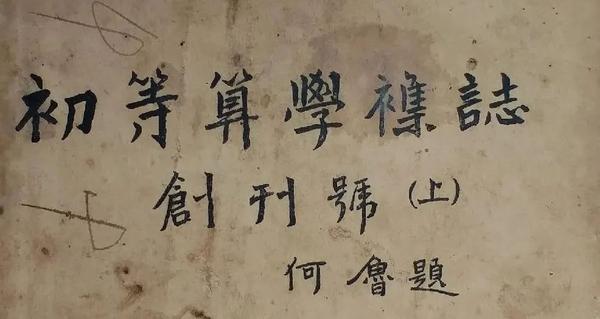 初等算學襍誌
創刊號(上)
何魯題